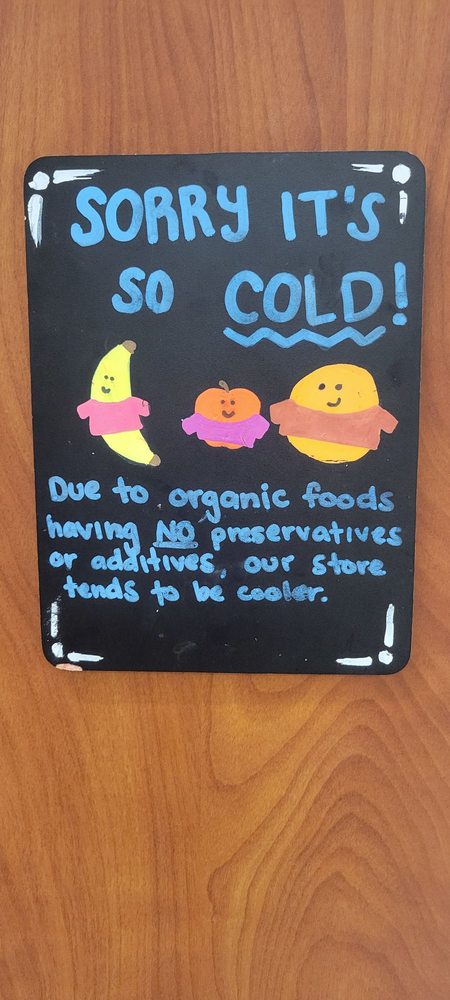 SORRY IT'S
SO COLD!
Due to organic foods
having NO preservatives
or additives, our store
tends to be cooler.